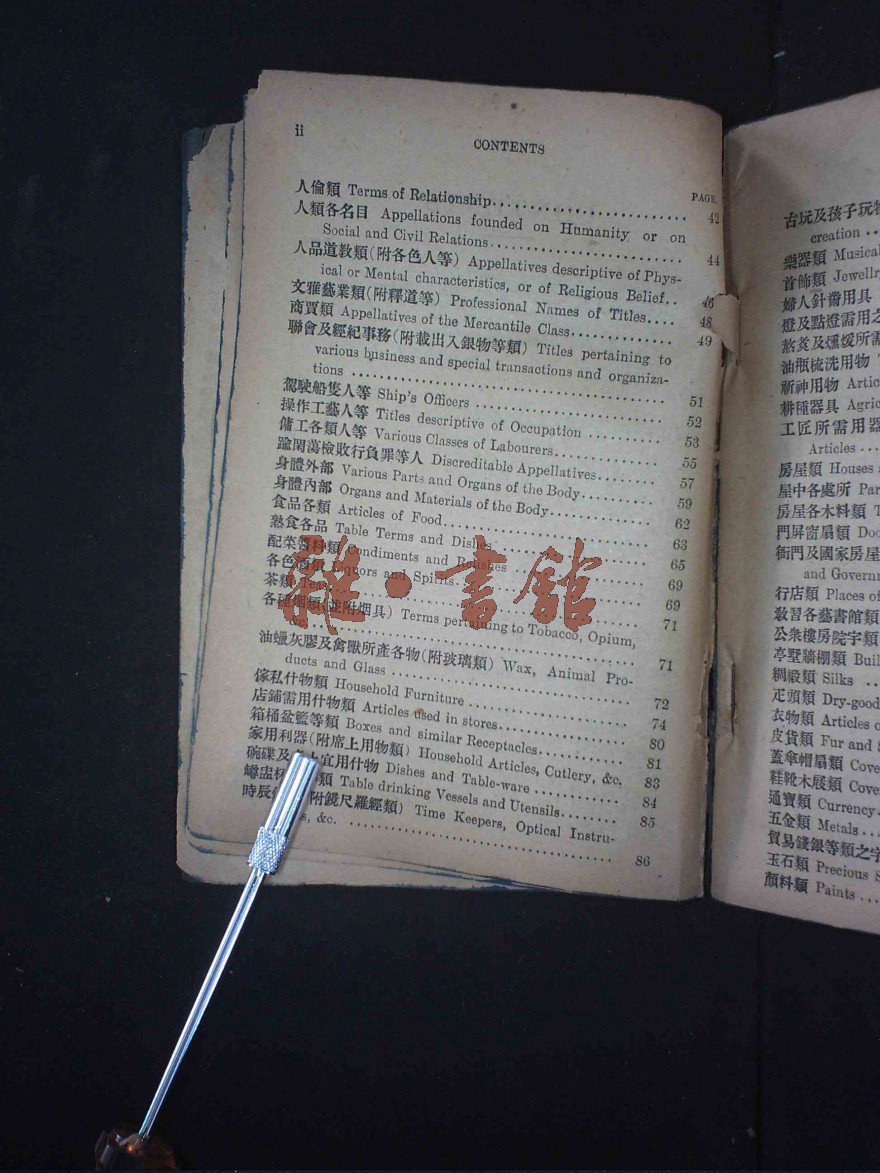 ii
CONTENTS
PAGE.
人倫類 Terms of Relationship 42
人類各名目 Appellations founded on Humanity or on
Social and Civil Relations 44
人品道教類(附各色人等) Appellatives descriptive of Phys-
ical or Mental characteristics, or of Religious Belief 46
文雅藝業類(附釋道等) Professional Names of Titles 48
商賈類 Appellatives of the Mercantile Class 49
聯會及經紀事務(附載出入銀物等類) Titles pertaining to
various business and special transactions and organiza-
tions 51
駕駛船隻人等 Ship's Officers 52
操作工藝人等 Titles descriptive of Occupation 53
傭工各類人等 Various Classes of Labourers 55
踰閑蕩檢敗行負罪等人 Discreditable Appellatives 57
身體外部 Various Parts and Organs of the Body 59
身體內部 Organs and Materials of the Body 62
食品各類 Articles of Food 63
熟食各品 Table Terms and Dishes 65
配菜醬料類 Condiments and Relishes 69
各色酒類 Liquors and Spirits 69
茶類 Teas 71
各種烟類(並附烟具) Terms pertaining to Tobacco, Opium,
&c. 71
油蠟灰膠及禽獸所產各物(附玻璃類) Wax, Animal Pro-
ducts and Glass 72
傢私什物類 Household Furniture 74
店鋪需用什物類 Articles used in stores 80
箱桶盆籃等類 Boxes and similar Receptacles 81
家用利器(附席上用物類) Household Articles, Cutlery, &c. 83
碗碟及 宜用什物 Dishes and Table-ware 84
罇盅杯 類 Table drinking Vessels and Utensils 85
時辰 附鏡尺羅經類) Time Keepers, Optical Instru-
s, &c. 86
古玩及孩子玩物
creation
樂器類 Musical
首飾類 Jewellry
婦人針黹用具
燈及點燈需用之
熬煑及燻煖所需
油瓶梳洗用物
祈神用物 Artic
耕種器具 Agric
工匠所需用器
Articles
房屋類 Houses a
屋中各處所 Par
房屋各木料類 T
門屏窗扇類 Doo
衙門及國家房屋
and Governm
行店類 Places of
敎習各藝書館類
公衆樓房院宇類
亭墅牆棚類 Buil
綢緞類 Silks
疋頭類 Dry-good
衣物類 Articles o
皮貨類 Fur and
蓋傘帽扇類 Cove
鞋靴木屐類 Cove
通寶類 Currency
五金類 Metals
貿易錢銀等類之字
玉石類 Precious S
顏料類 Paints
雜·書館